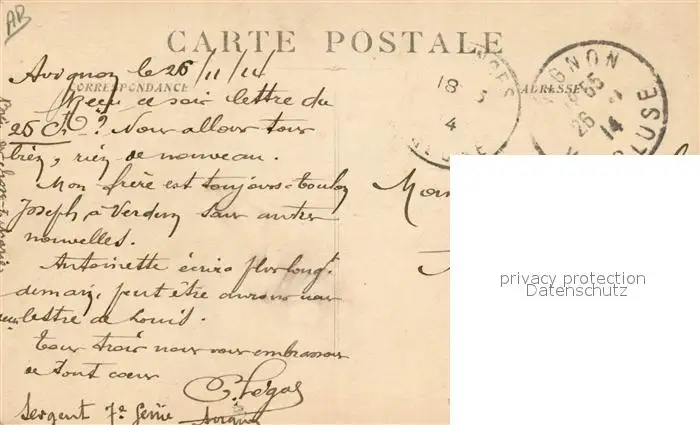 AB
CARTE POSTALE
CORRESPONDANCE
ADRESSE
AVIGNON
26 11 14
VAUCLUSE
18
4
Avignon le 26/11/14
Reçu ce soir lettre du
25 Ct ? Nous allons tous
bien, rien de nouveau.
Mon frère est toujours à Toulon
Joseph à Verdun sans autres
nouvelles.
Antoinette écrira plus longt
demain, peut être aurons nous
lettre de Louis.
Tous trois nous vous embrassons
de tout coeur
Sergent 7e Génie
Avignon
privacy protection
Datenschutz